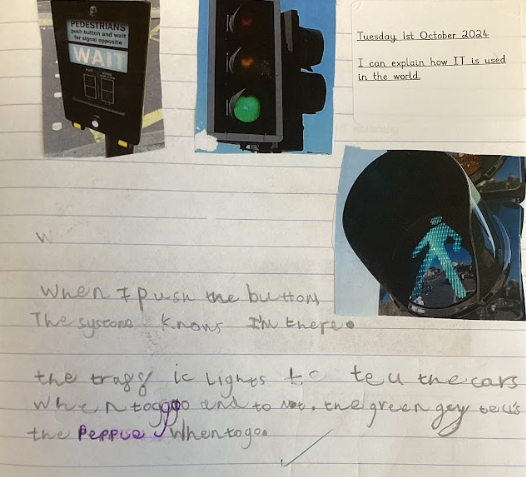 PEDESTRIANS
push button and wait
for signal opposite
WAIT
Tuesday 1st October 2024
I can explain how IT is used
in the world.
W
When I push the button
The systome knows I'm there.
the traff ic Lights to tell the cars
when to go and to not. the green guy tells
the Pepple when to go.